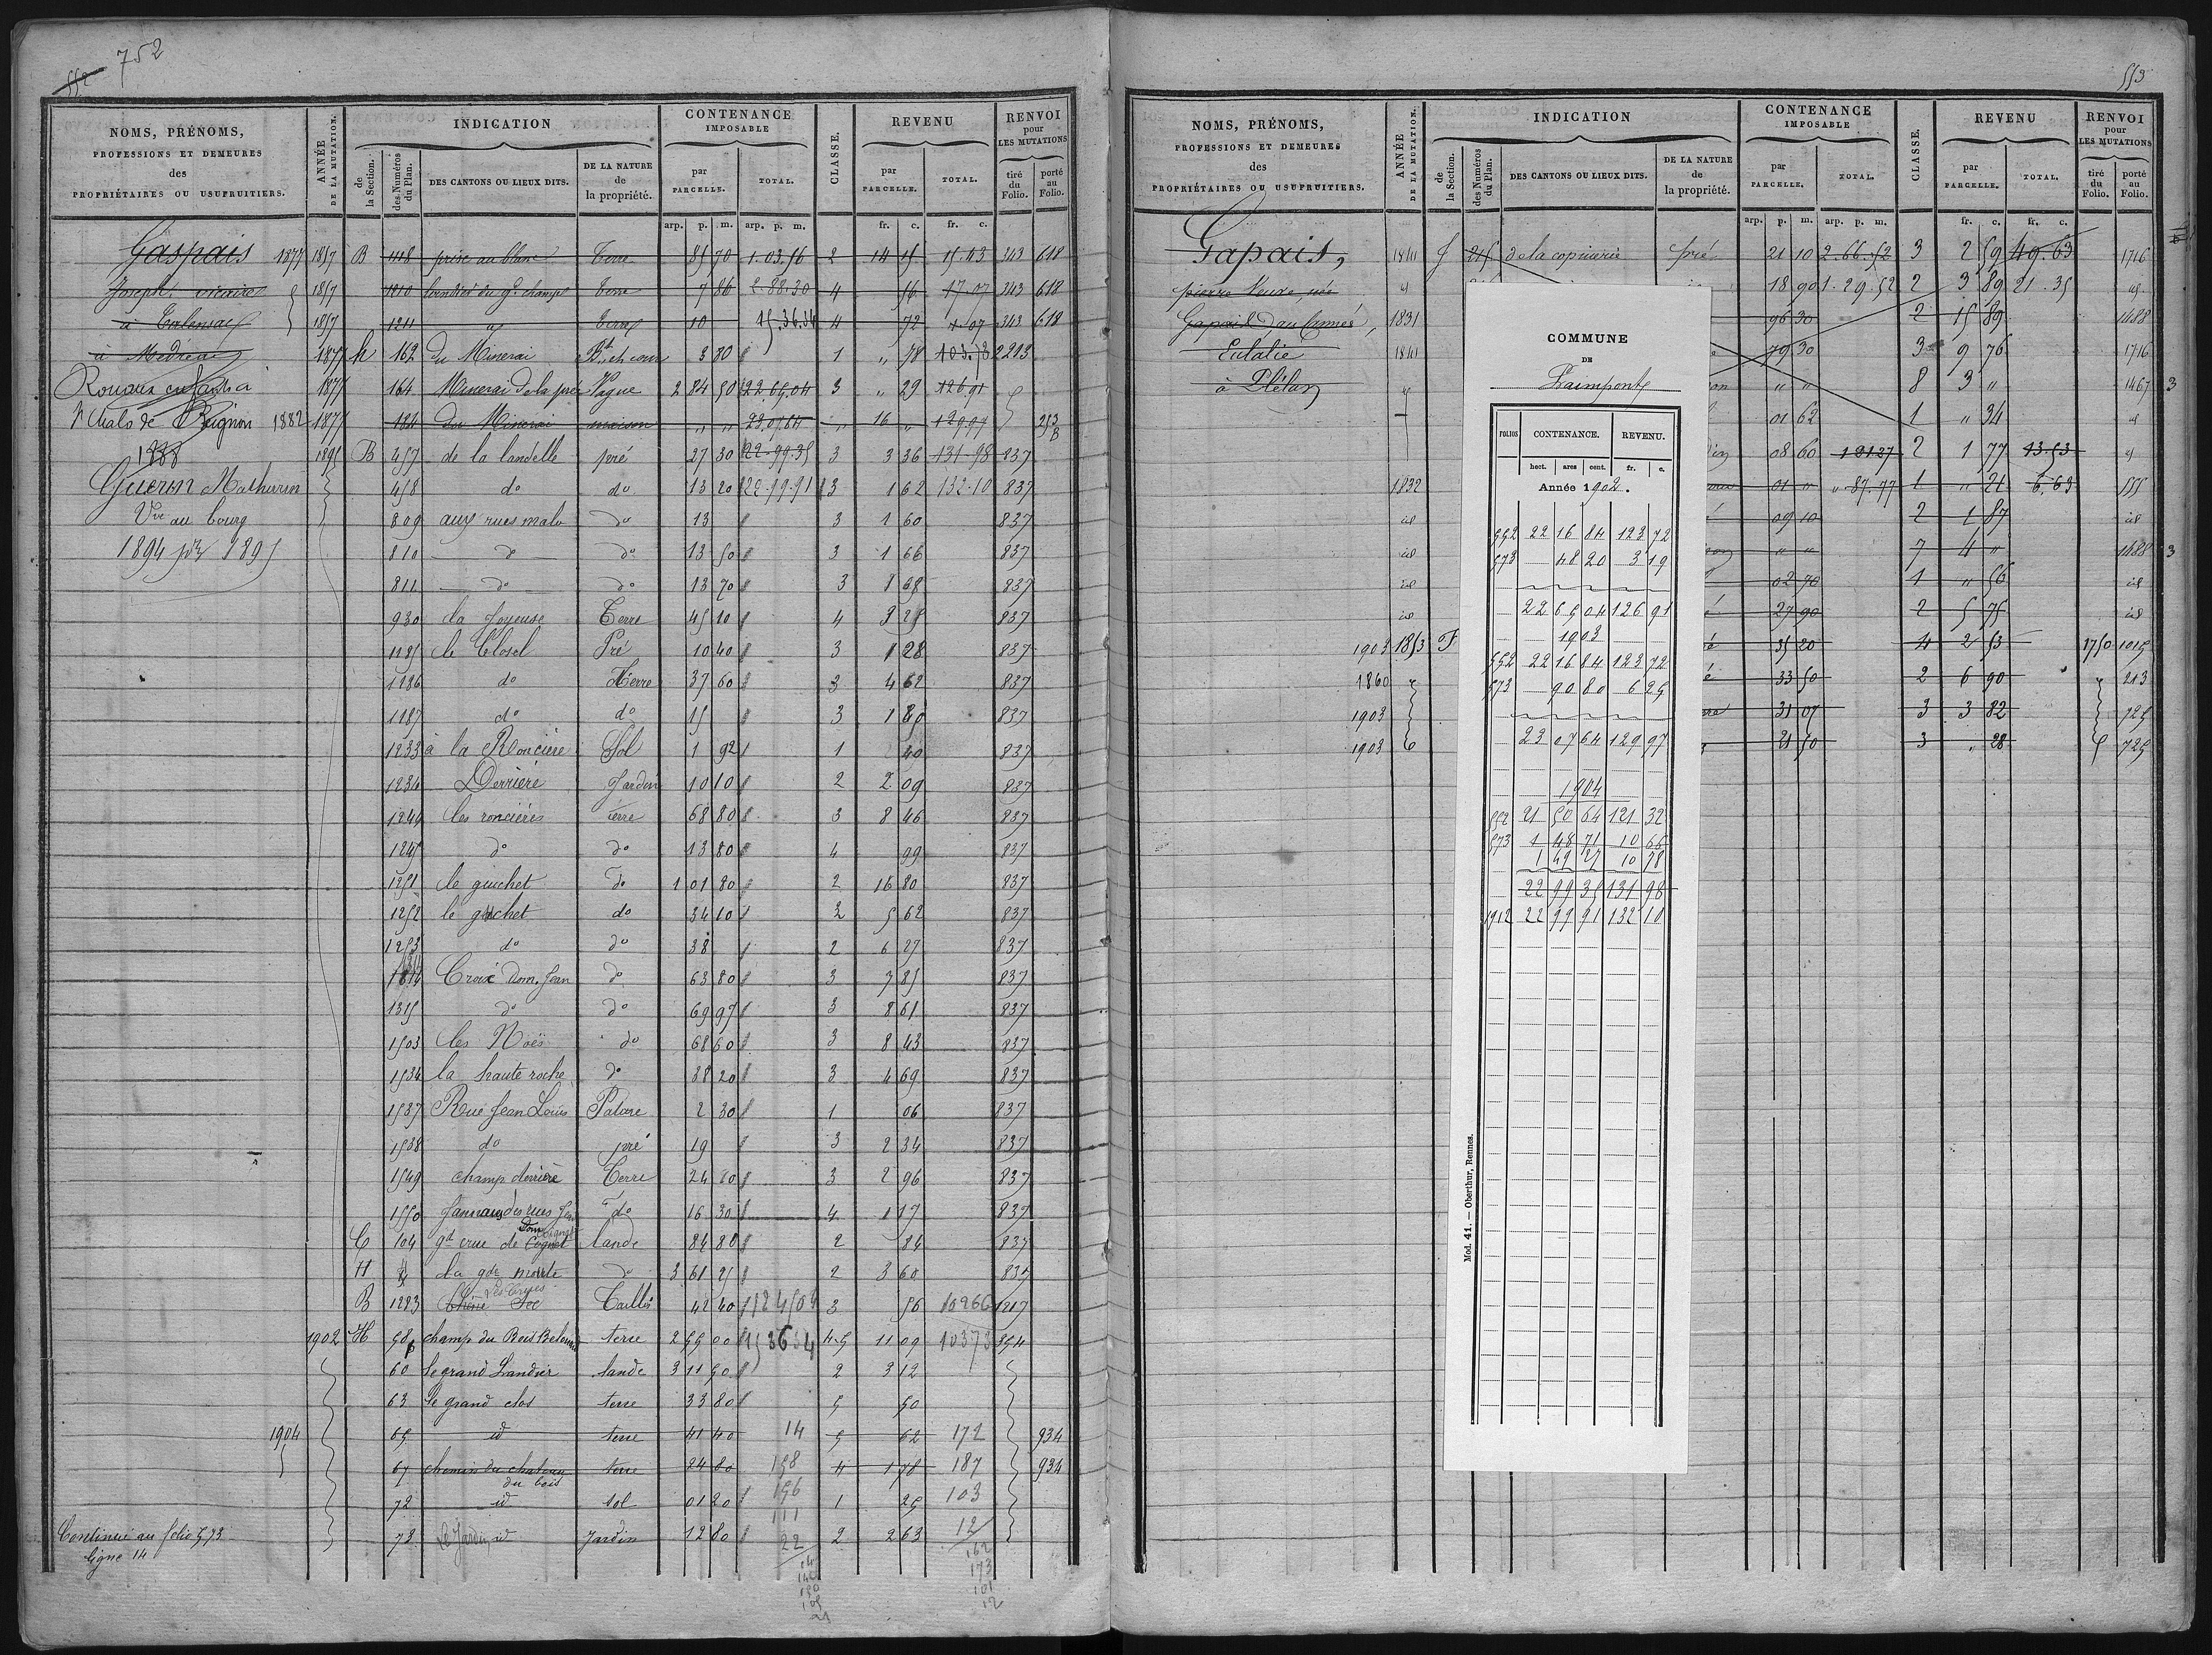 752
552
NOMS, PRÉNOMS,
PROFESSIONS ET DEMEURES
des
PROPRIÉTAIRES OU USUFRUITIERS.
ANNÉE
DE LA MUTATION.
INDICATION
de
la Section.
des Numéros
du Plan.
DES CANTONS OU LIEUX DITS.
DE LA NATURE
de
la propriété.
CONTENANCE
IMPOSABLE
par
PARCELLE.
TOTAL.
CLASSE.
REVENU
par
PARCELLE.
TOTAL.
RENVOI
pour
LES MUTATIONS
tiré
du
Folio.
porté
au
Folio.
arp. p. m. arp. p. m. fr. c. fr. c.
Gaspais 1877 1857 B 1118 prise au blanc Terre 85 70 1.03.56 2 14 15 15.43 343 618
Joseph vicaire 1857 1210 du Gd champ Terre 7 86 2.88.30 4 56 17.07 343 618
à Talensac 1857 1211 id Terre 10 15.36.34 4 72 343 618
à Médréac 1877 h 162 du Minerai Bt et cour 3 80 1 " 78 103.73 2213
Rouaux 1877 164 Minerai de la prée Vague 2 84 50 22.65.04 3 " 29 126.91
St Malo de Beignon 1882 1877 184 du Minerai maison " " 23.07.64 " 16 " 129.97 253 B
1888 1895 B 457 de la landelle pré 27 30 22.99.35 3 3 36 131-98 837
Guerin Mathurin 458 do do 13 20 22.99.91 3 1 62 132.10 837
Vve au bourg 809 aux rues malo do 13 3 1 60 837
1894 pr 1895 810 do do 13 50 3 1 66 837
811 do do 13 70 3 1 68 837
930 la Joyeuse Terre 45 10 4 3 25 837
1185 le Closel Pré 10 40 3 1 28 837
1186 do Terre 37 60 3 4 62 837
1187 do do 15 3 1 80 837
1233 à la Roncière Sol 1 92 1 40 837
1234 Derrière Jardin 10 10 2 2 09 837
1244 les roncières Terre 68 80 3 8 46 837
1245 do do 13 80 4 99 837
1251 le guichet do 1 01 80 2 16 80 837
1252 le guichet do 34 10 2 5 62 837
1253 do do 38 2 6 27 837
1314 Croix Dom. Jean do 63 80 3 7 85 837
1315 do do 69 97 3 8 61 837
1503 les Noës do 68 60 3 8 43 837
1534 la haute roche do 38 20 3 4 69 837
1537 Rue Jean Louis Pature 2 30 1 06 837
1538 do pré 19 3 2 34 837
1549 champ derrière Terre 24 10 3 2 96 837
1550 des rues do 16 30 4 1 17 837
C 104 gd crue de lande 84 80 2 84 837
H la gde motte do 3 61 25 2 3 60 837
B 1223 Sec Taillis 42 40 124504 3 56 10266 1217
1902 H 58p champ du Bois terre 2 55 00 153634 4-5 11 09 10373 854
60 le grand Landier lande 3 11 50 2 3 12
63 le grand clos terre 33 80 5 50
1904 65 id terre 41 40 14 5 62 172 934
67 chemin du chateau du bois terre 24 80 158 4 1 78 187 934
72 id sol 01 20 156 1 25 103
111
Continué au folio 573 73 Le Jardin id Jardin 12 80 22 2 2 63 12
ligne 14
162
173
101
12
553
NOMS, PRÉNOMS,
PROFESSIONS ET DEMEURES
des
PROPRIÉTAIRES OU USUFRUITIERS.
ANNÉE
DE LA MUTATION.
INDICATION
de
la Section.
des Numéros
du Plan.
DES CANTONS OU LIEUX DITS.
DE LA NATURE
de
la propriété.
CONTENANCE
IMPOSABLE
par
PARCELLE.
TOTAL.
CLASSE.
REVENU
par
PARCELLE.
TOTAL.
RENVOI
pour
LES MUTATIONS
tiré
du
Folio.
porté
au
Folio.
arp. p. m. arp. p. m. fr. c. fr. c.
Gapais, 1841 215 de la copinerie pré 21 10 2.66.52 3 2 59 49.63 1716
pierre Veuve, née id 18 90 1.29.52 2 3 89 21.35 id
1831 96 30 2 15 89 1488
Eulalie 1841 79 30 3 9 76 1716
à Plélan id " " 8 3 " 1467 3
01 62 1 " 34 id
08 60 1 21.27 2 1 77 13.53 id
1832 01 " ".87.77 1 " 21 6.63 555
id 09 10 2 1 87 id
id " " 7 4 " 1488 3
id 02 70 1 " 56 id
id 27 90 2 5 75 id
1903 1853 F 35 20 4 2 53 1750 1015
1860 33 50 2 6 90 213
1903 31 07 3 3 82 725
1903 21 50 3 " 28 725
COMMUNE
DE
Paimpont
FOLIOS CONTENANCE. REVENU.
hect. ares cent. fr. c.
Année 1902.
552 22 16 84 123 72
573 48 20 3 19
22 65 04 126 91
1903
552 22 16 84 123 72
573 90 80 6 25
23 07 64 129 97
1904
552 21 50 64 121 32
573 1 48 71 10 66
1 49 27 10 78
22 99 35 131 98
1912 22 99 91 132 10
Mod. 41. — Oberthur, Rennes.